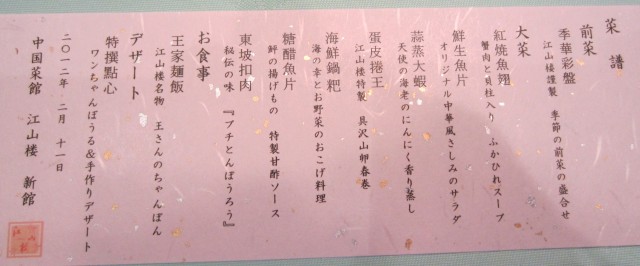 菜譜
前菜
季華彩盤
江山楼謹製 季節の前菜の盛合せ
大菜
紅焼魚翅
蟹肉と貝柱入り ふかひれスープ
鮮生魚片
オリジナル中華風さしみのサラダ
蒜蒸大蝦
天使の海老のにんにく香り蒸し
蛋皮捲王
江山楼特製 具沢山卵春巻
海鮮鍋粑
海の幸とお野菜のおこげ料理
糖醋魚片
鮮の揚げもの 特製甘酢ソース
東坡扣肉
秘伝の味 『プチとんぽうろう』
お食事
王家麺飯
江山楼名物 王さんのちゃんぽん
デザート
特撰點心
ワンちゃんぼうる&手作りデザート
二〇一二年 二月 十一日
中国菜館 江山楼 新館